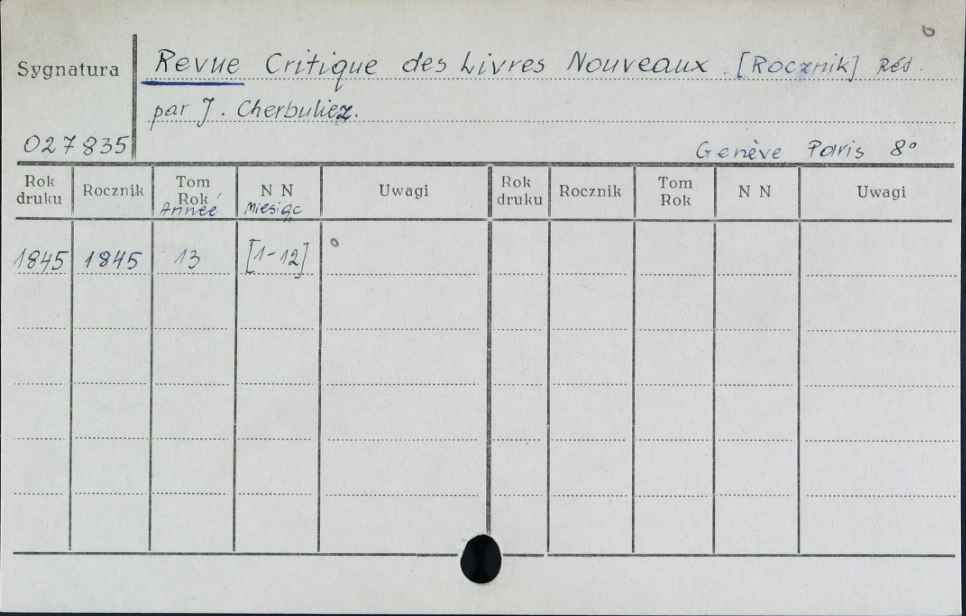 Sygnatura
Revue Critique des Livres Nouveaux. [Rocznik] Réd.
par J. Cherbuliez.
027835
Genève Paris 8°
Rok druku Rocznik Tom Rok Année N N Miesiąc Uwagi Rok druku Rocznik Tom Rok N N Uwagi
1845 1845 13 [1-12]